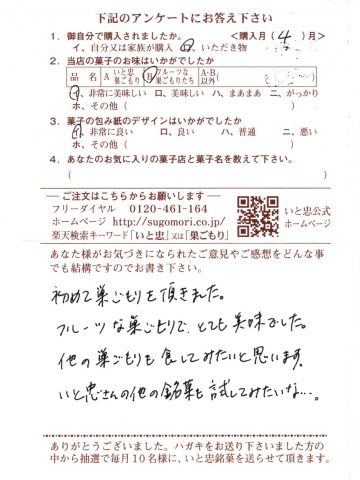 下記のアンケートにお答え下さい
1．御自分で購入されましたか。 ＜購入月（4）月＞
イ、自分又は家族が購入 ロ、いただき物
2．当店の菓子のお味はいかがでしたか
品 名 A いと忠巣ごもり B フルーツな巣ごもりたち A・B以外
イ、非常に美味しい ロ、美味しい ハ、まあまあ ニ、がっかり
ホ、その他（ ）
3．菓子の包み紙のデザインはいかがでしたか
イ、非常に良い ロ、良い ハ、普通 ニ、悪い
ホ、その他（ ）
4．あなたのお気に入りの菓子店と菓子名を教えて下さい。
（ ）
ご注文はこちらからお願いします
フリーダイヤル 0120-461-164
ホームページ http://sugomori.co.jp/
楽天検索キーワード「いと忠」又は「巣ごもり」
いと忠公式
ホームページ
あなた様がお気づきになられたご意見やご感想をどんな事
でも結構ですのでお書き下さい。
初めて巣ごもりを頂きました。
フルーツな巣ごもりで、とても美味でした。
他の巣ごもりも食してみたいと思います。
いと忠さんの他の銘菓も試してみたいな…。
ありがとうございました。ハガキをお送り下さいました方の
中から抽選で毎月10名様に、いと忠銘菓を送らせて頂きます。